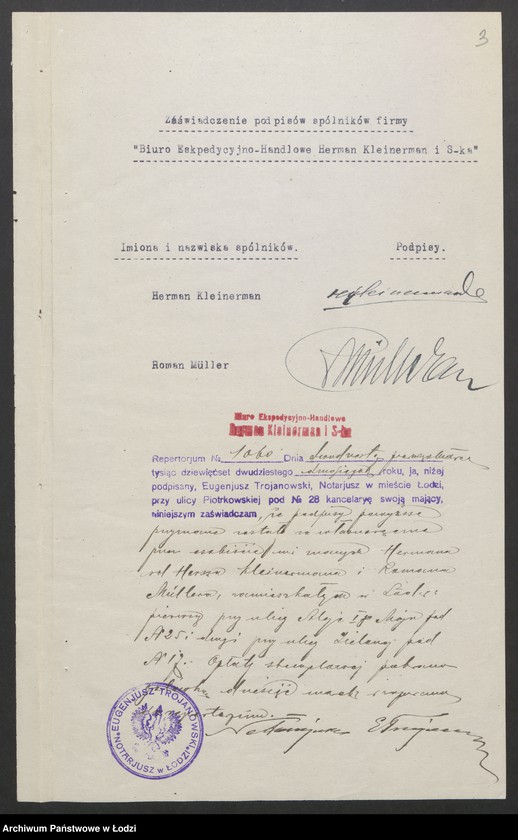 3
Zaświadczenie podpisów spólników firmy
"Biuro Eskpedycyjno-Handlowe Herman Kleinerman i S-ka"
Imiona i nazwiska spólników.
Podpisy.
Herman Kleinerman
HKleinerman
Roman Müller
RMüller
Biuro Ekspedycyjno-Handlowe
Herman Kleinerman i S-ka
Repertorjum № 1060 Dnia
tysiąc dziewięćset dwudziestego roku, ja, niżej
podpisany, Eugenjusz Trojanowski, Notarjusz w mieście Łodzi,
przy ulicy Piotrkowskiej pod № 28 kancelaryę swoją mający,
niniejszym zaświadczam, że podpisy powyższe
Hermana
vel Kleinermana i Romana
Müllera, zamieszkałych w Łodzi:
pierwszy przy ulicy Aleje I go Maja pod
№ 25 i drugi przy ulicy Zielonej pod
№ 17. Opłaty stemplowej pobrano
dzieścia marek
Notarjusz ETrojanowski
EUGENJUSZ TROJANOWSKI
NOTARJUSZ W ŁODZI
Archiwum Państwowe w Łodzi